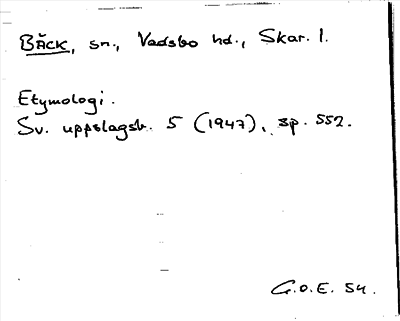 BÄCK, sn., Vadsbo hd., Skar. l.
Etymologi.
Sv. uppslagsb. 5 (1947), sp. 552.
G.O.E. 54.